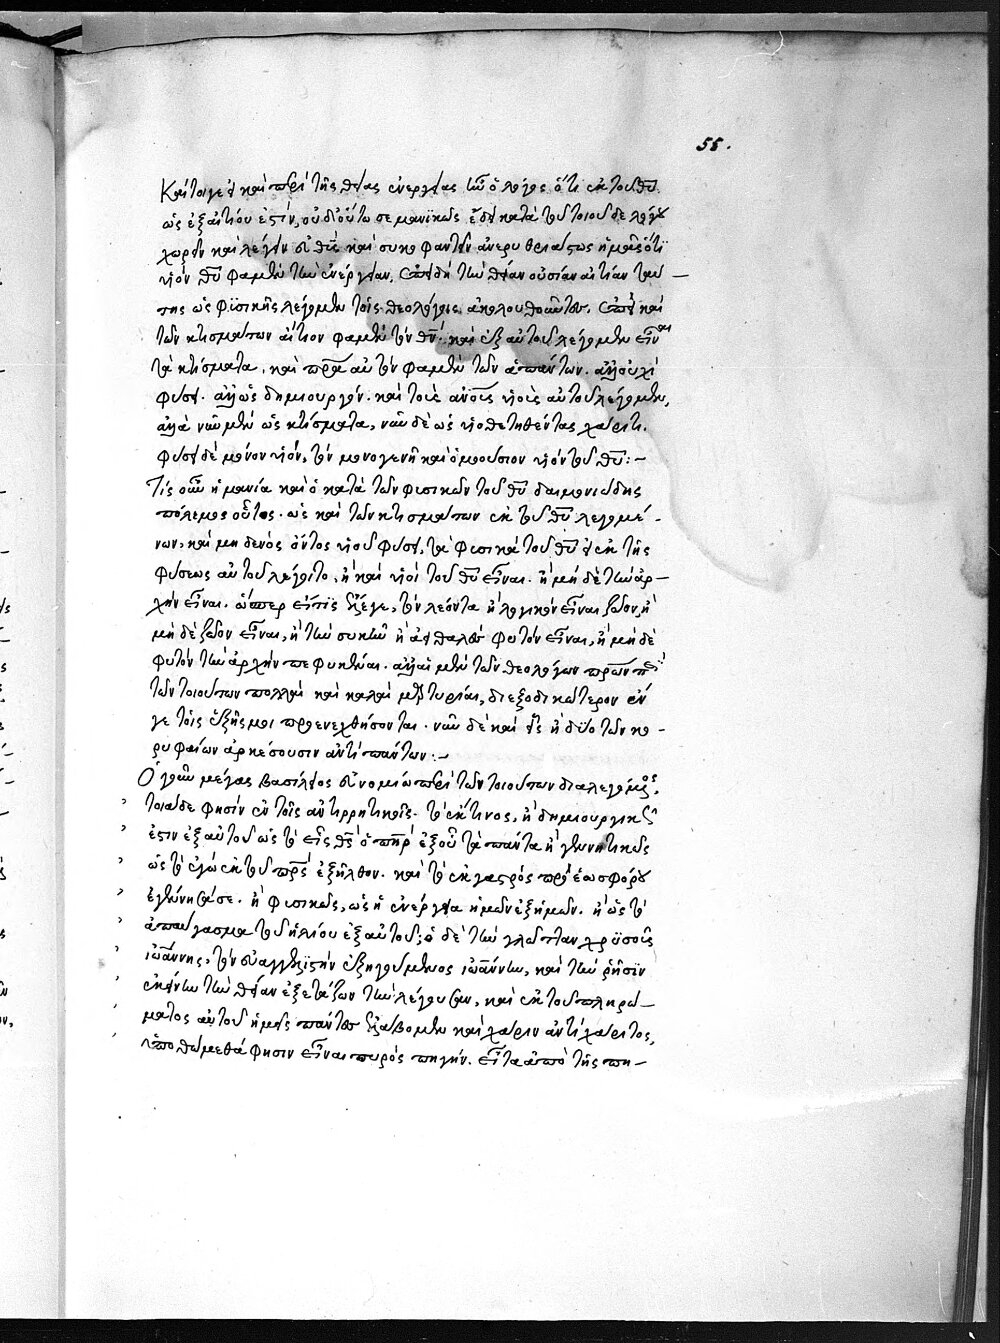 55.
Καίτοιγε εἰ καὶ περὶ τῆς θείας ἐνεργείας ἦν ὁ λόγος ὅτι ἐκ τοῦ θῦ
ὡς ἐξ αἰτίου ἐστίν, οὐδ' οὕτω σε μανικῶς ἔδει κατὰ τοῦ τοιοῦδε λόγου
χωρεῖν καὶ λέγειν καὶ συκοφαντεῖν ἀνερυθριάστως ἡμᾶς ὅτι
υἱὸν θῦ φαμὲν τὴν ἐνέργειαν, ἐπειδὴ τὴν θείαν οὐσίαν αἰτίαν ταύ-
της ὡς φυσικῆς λέγομεν τοῖς θεολόγοις ἀκολουθοῦντες. ἐπεὶ καὶ
τῶν κτισμάτων αἴτιον φαμὲν τὸν θν̄. καὶ ἐξ αὐτοῦ λέγομεν εἶναι
τὰ κτίσματα, καὶ πρ̄α αὐτὸν φαμὲν τῶν ἁπάντων. ἀλλ' οὐχὶ
φύσει. ἀλλ' ὡς δημιουργόν. καὶ τοὺς ἀνο̄υς υἱοὺς αὐτοῦ λέγομεν,
ἀλλὰ νῦν μὲν ὡς κτίσματα, νῦν δὲ ὡς υἱοθετηθέντας χάριτι.
φύσει δὲ μόνον υἱόν, τὸν μονογενῆ καὶ ὁμοούσιον υἱὸν τοῦ θῦ:-
Τίς οὖν ἡ μανία καὶ ὁ κατὰ τῶν φυσικῶν τοῦ θῦ δαιμονιώδης
πόλεμος οὗτος. ὡς καὶ τῶν κτισμάτων ἐκ τοῦ θῦ λεγομέ-
νων, καὶ μηδενὸς ὄντος υἱοῦ φύσει, τὰ φυσικὰ τοῦ θῦ εἰ ἐκ τῆς
φύσεως αὐτοῦ λέγοιτο, ἢ καὶ υἱοὶ τοῦ θῦ εἶναι. ἢ μηδὲ τὴν ἀρ-
χὴν εἶναι. ὥσπερ εἴ τις ἔλεγε, τὸν λέοντα ἢ λογικὸν εἶναι ζῶον, ἢ
μηδὲ ζῶον εἶναι, ἢ τὴν συκῆν ἢ ἀειθαλὲς φυτὸν εἶναι, ἢ μηδὲ
φυτὸν τὴν ἀρχὴν πεφυκέναι. ἀλλ' αἱ μὲν τῶν θεολόγων πρ̄ων περὶ
τῶν τοιούτων πολλαὶ καὶ καλαὶ μαρτυρίαι, διεξοδικώτερον ἔν
γε τοῖς ἑξῆς μοι προενεχθήσονται. νῦν δὲ καὶ εἷς ἢ δύο τῶν κο-
ρυφαίων ἀρκέσουσιν ἀντὶ πάντων:-
Ὁ γοῦν μέγας βασίλειος εὐνομίῳ περὶ τῶν τοιούτων διαλεγόμενος,
τοιάδε φησὶν ἐν τοῖς ἀντιρρητικοῖς. τὸ ἔκ τινος, ἢ δημιουργικῶς
ἐστιν ἐξ αὐτοῦ ὡς τὸ εἷς θς̄ ὁ πη̄ρ ἐξ οὗ τὰ πάντα ἢ γεννητικῶς
ὡς τὸ ἐγὼ ἐκ τοῦ πρ̄ς ἐξῆλθον. καὶ τὸ ἐκ γαστρὸς πρὸ ἑωσφόρου
ἐγέννησά σε. ἢ φυσικῶς, ὡς ἡ ἐνέργεια ἡμῶν ἐξ ἡμῶν. ἢ ὡς τὸ
ἀπαύγασμα τοῦ ἡλίου ἐξ αὐτοῦ; ὁ δὲ τὴν γλῶτταν χρυσοῦς
ἰωάννης, τὸν εὐαγγελιστὴν ἐξηγούμενος ἰωάννην, καὶ τὴν ῥῆσιν
ἐκείνην τὴν θείαν ἐξετάζων τὴν λέγουσαν, καὶ ἐκ τοῦ πληρώ-
ματος αὐτοῦ ἡμεῖς πάντες ἐλάβομεν καὶ χάριν ἀντὶ χάριτος,
ὑποθώμεθά φησιν εἶναι πυρὸς πηγήν. εἶτα ἀπὸ τῆς πη-